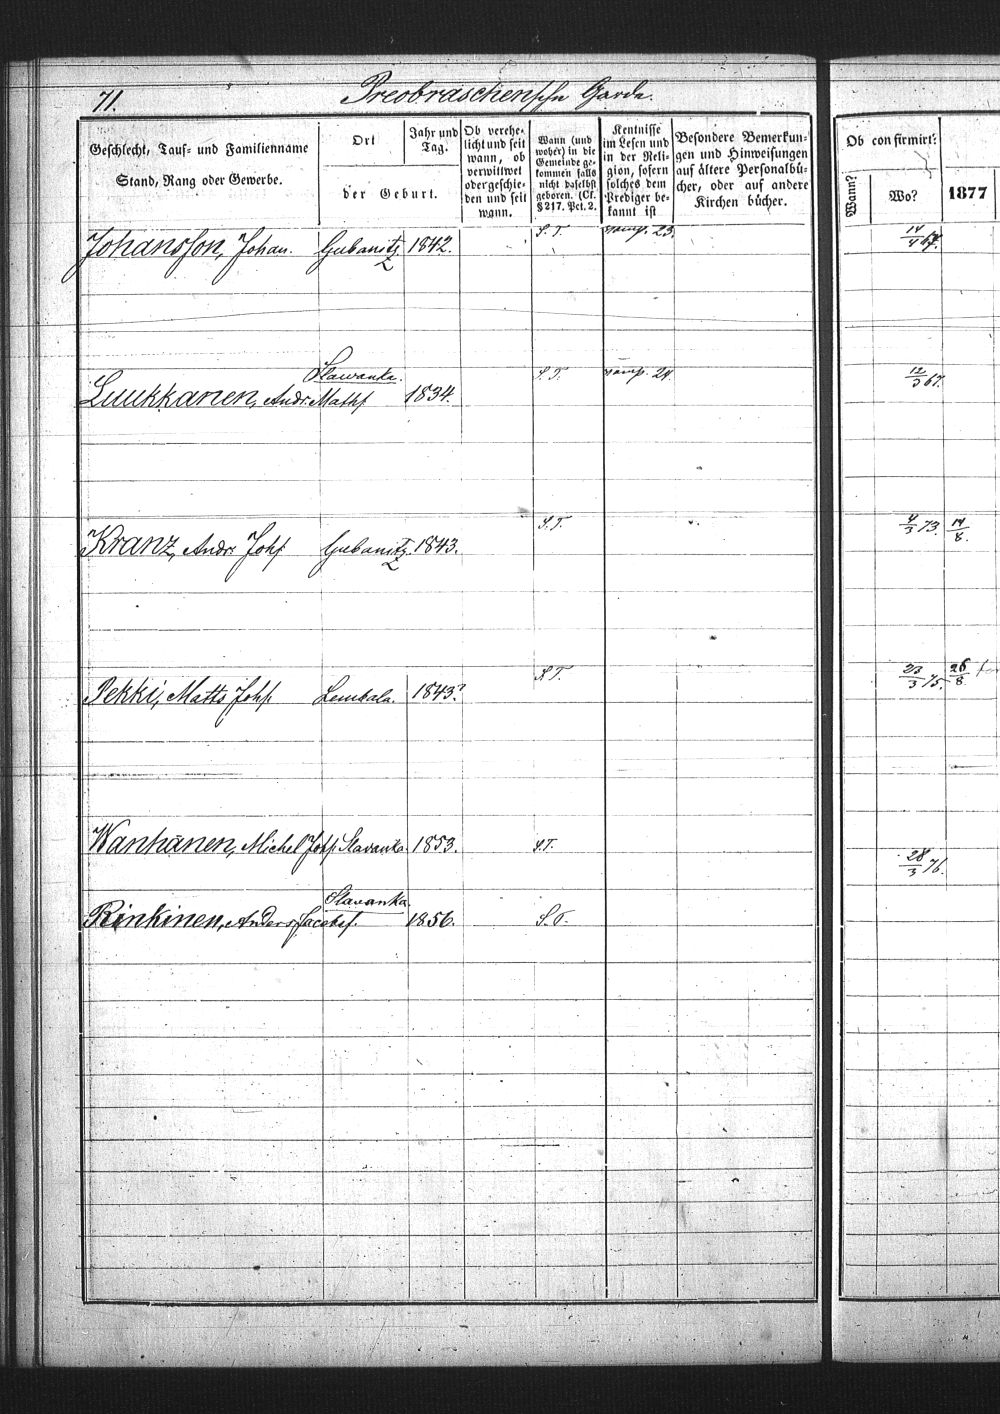 71. Preobraschensche Garde.
Geschlecht, Tauf- und Familienname
Stand, Rang oder Gewerbe.
Ort
der Geburt.
Jahr und
Tag.
Ob verehe-
licht und seit
wann, ob
verwittwet
oder geschie-
den und seit
wann.
Wann (und
woher) in die
Gemeinde ge-
kommen falls
nicht daselbst
geboren. (Cf.
§ 217. Pct. 2.
Kentnisse
im Lesen und
in der Reli-
gion, sofern
solches dem
Prediger be-
kannt ist
Besondere Bemerkun-
gen und Hinweisungen
auf ältere Personalbü-
cher, oder auf andere
Kirchen bücher.
Ob confirmirt:
Wann?
Wo?
1877
Johansson, Johan. Gubanitz. 1842. S. T. 23. 14/4 67.
Slawanka. S. T. 24. 12/3 67.
Luukkanen, Andr. Mathf 1834.
S. T. 4/3 73. 14/8.
Kranz, Andr. Johf Gubanitz. 1843.
S. T. 23/3 75. 26/8
Pekki, Matts Johf Lembala. 1843?
Wanhänen, Michel Johf Slavanka. 1853. S.T. 28/3 76.
Slavanka.
Rinkinen, Anders Jacobsf. 1856. S. T.